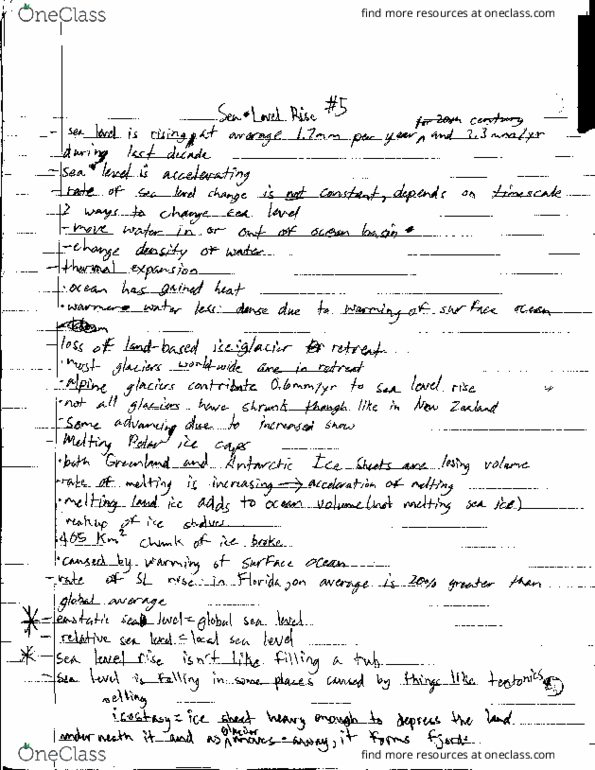 OneClass
find more resources at oneclass.com
Sea Level Rise #5
for 20th century
- sea level is rising at average 1.7mm per year ^ and 2.3mm/yr
during last decade
- sea level is accelerating
- rate of sea level change is not constant, depends on timescale
2 ways to change sea level
- move water in or out of ocean basin
- change density of water
- thermal expansion
· ocean has gained heat
· warmer water less dense due to warming of surface ocean
- loss of land-based ice: glacier retreat
· most glaciers worldwide are in retreat
· alpine glaciers contribute 0.6mm/yr to sea level rise
· not all glaciers have shrunk though like in New Zealand
- Some advancing due to increased snow
- Melting Polar ice caps
· both Greenland and Antarctic Ice Sheets are losing volume
- rate of melting is increasing → acceleration of melting
· melting land ice adds to ocean volume (not melting sea ice)
of ice shelves
· 405 Km² chunk of ice broke
· caused by warming of surface ocean
- rate of SL rise in Florida, on average is 20% greater than
global average
* = eustatic sea level = global sea level
- relative sea level = local sea level
* sea level rise isn't like filling a tub
- sea level is falling in some places caused by things like tectonics
melting
isostasy = ice sheet heavy enough to depress the land
glacier
underneath it and as ^ moves away, it forms fjords
OneClass
find more resources at oneclass.com